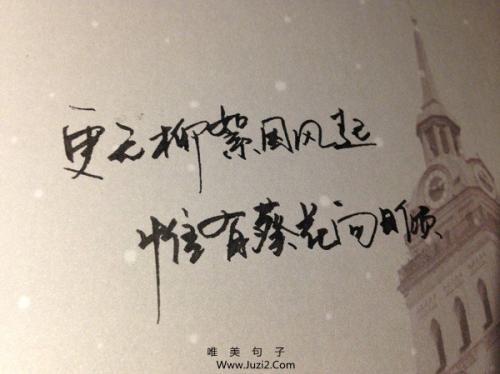 更无柳絮因风起
惟有葵花向日倾
唯美句子
Www.Juzi2.Com